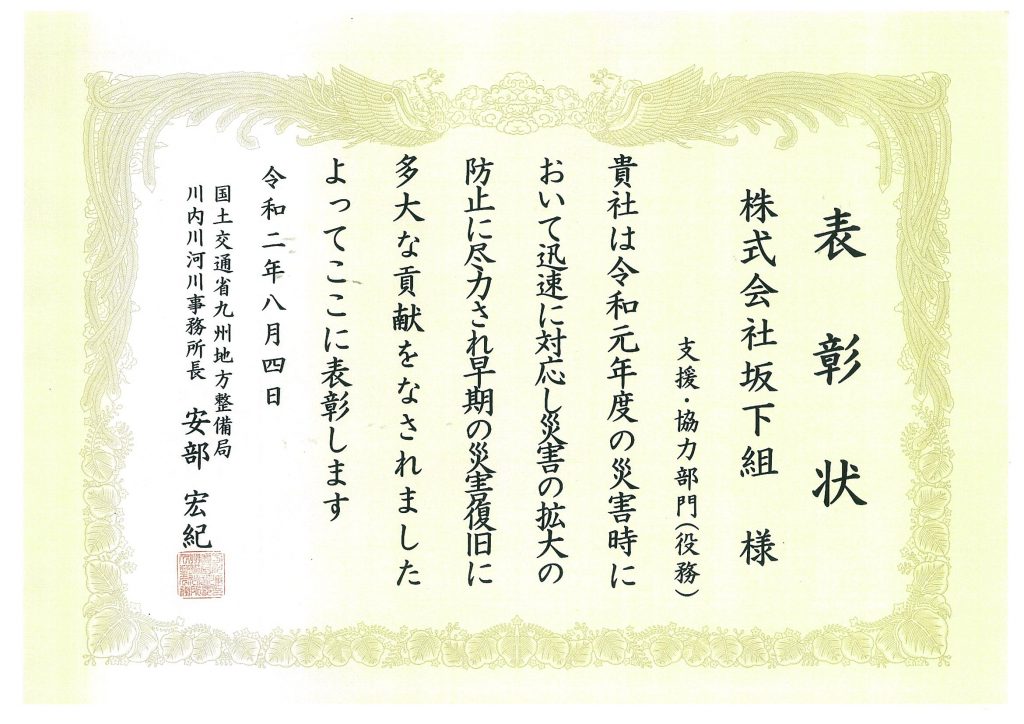 表彰状
株式会社坂下組 様
支援・協力部門(役務)
貴社は令和元年度の災害時に
おいて迅速に対応し災害の拡大の
防止に尽力され早期の災害復旧に
多大な貢献をなされました
よってここに表彰します
令和二年八月四日
国土交通省九州地方整備局
川内川河川事務所長 安部 宏紀